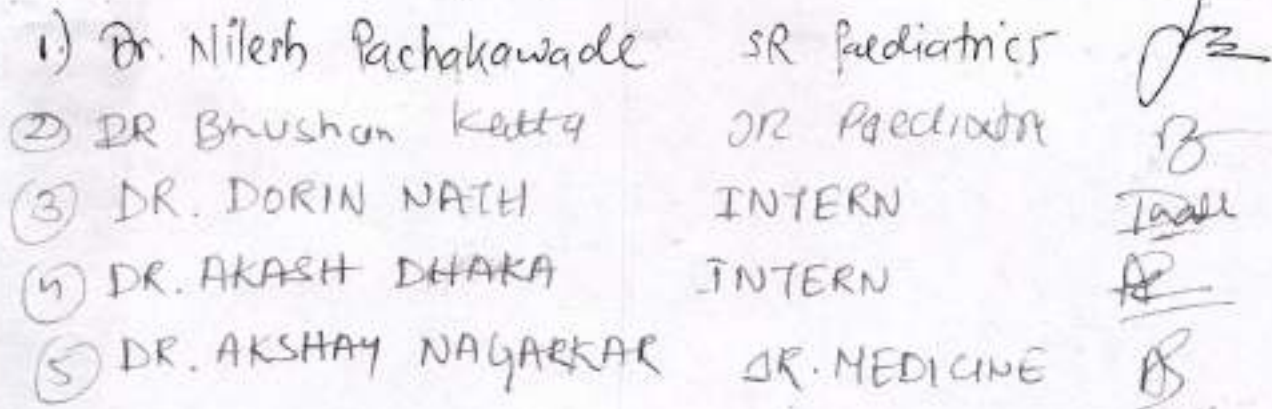 1.) Dr. Nilesh Pachakawade SR Paediatrics
② DR Bhushan Katta JR Paediatric
③ DR. DORIN NATH INTERN
④ DR. AKASH DHAKA INTERN
⑤ DR. AKSHAY NAGARKAR JR. MEDICINE